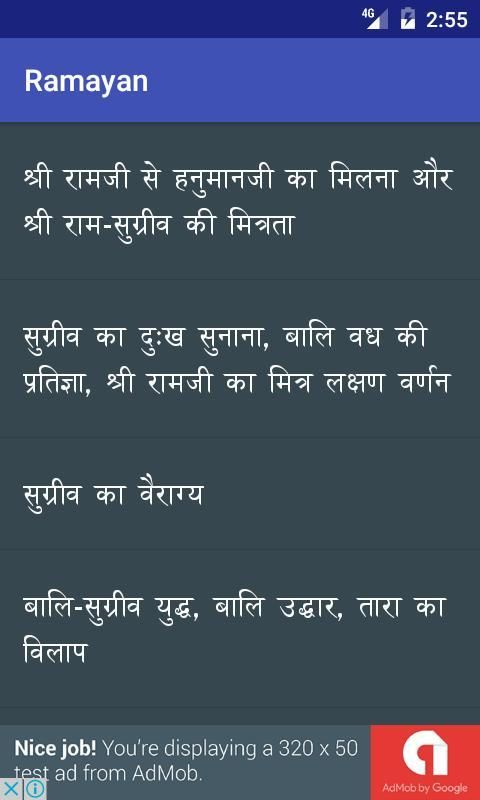 4G 2:55
Ramayan
श्री रामजी से हनुमानजी का मिलना और
श्री राम-सुग्रीव की मित्रता
सुग्रीव का दुःख सुनाना, बालि वध की
प्रतिज्ञा, श्री रामजी का मित्र लक्षण वर्णन
सुग्रीव का वैराग्य
बालि-सुग्रीव युद्ध, बालि उद्धार, तारा का
विलाप
Nice job! You're displaying a 320 x 50
test ad from AdMob.
AdMob by Google